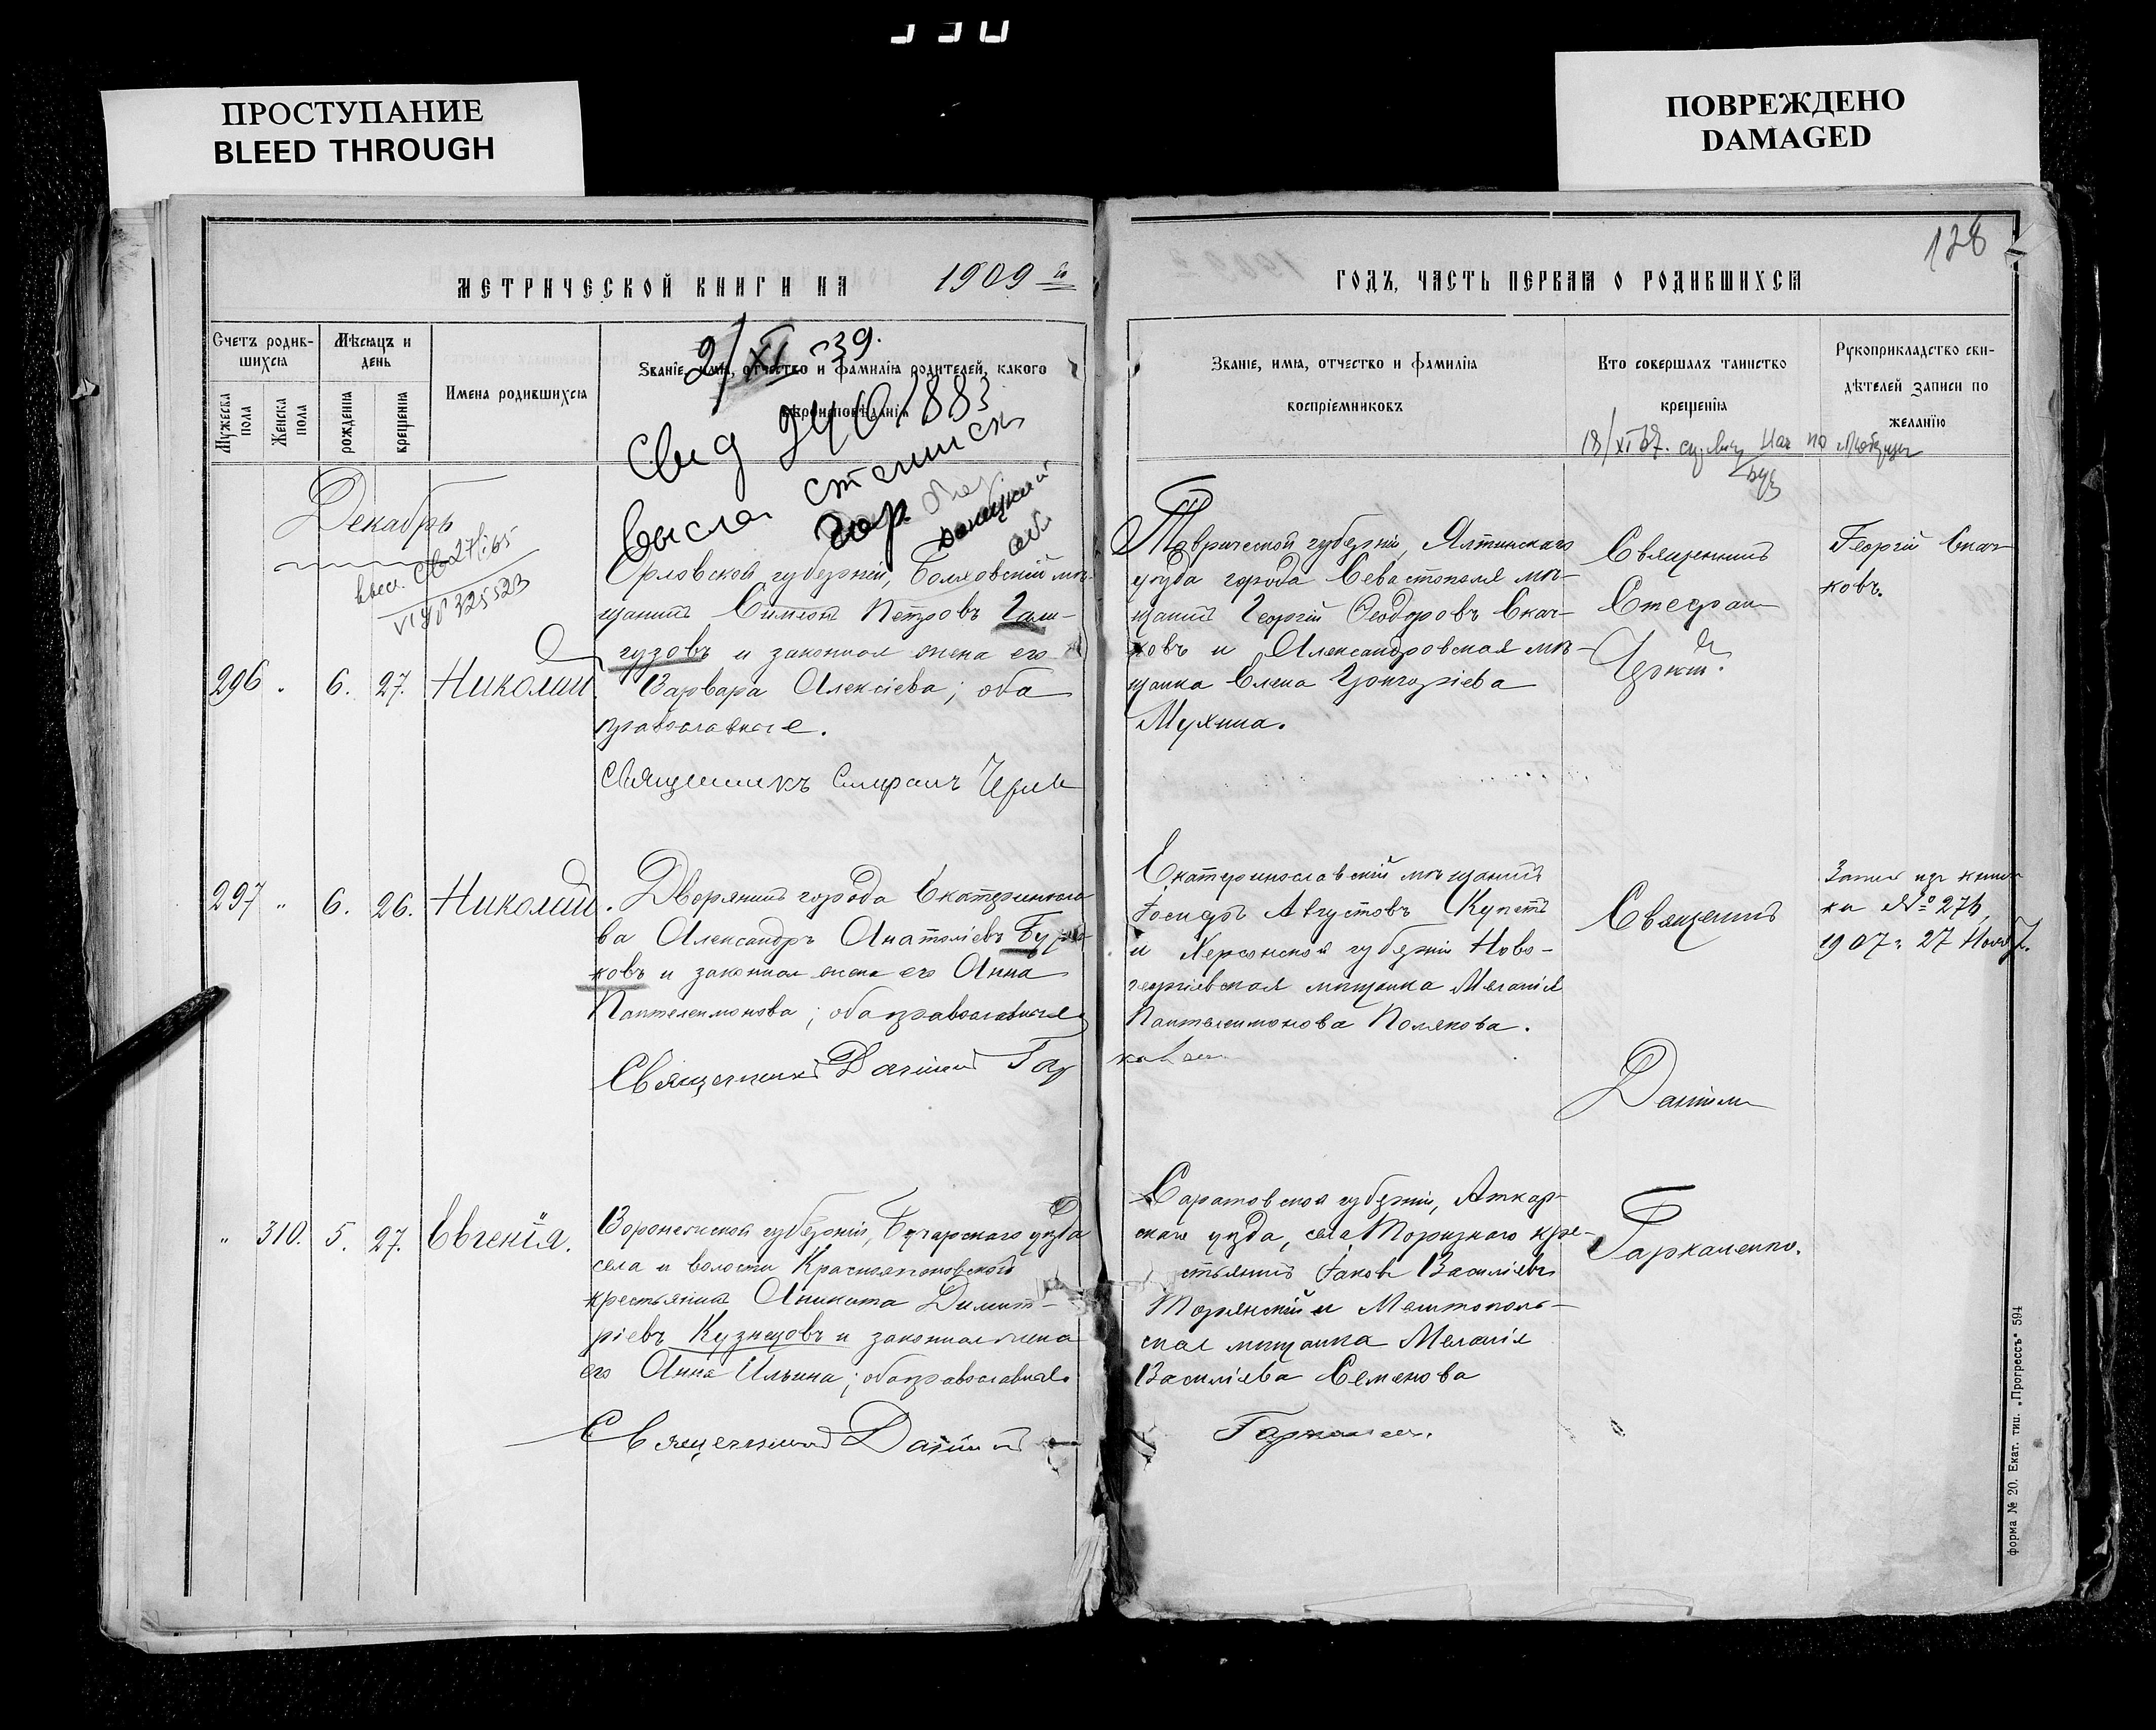 ПРОСТУПАНИЕ
BLEED THROUGH
ПОВРЕЖДЕНО
DAMAGED
128
МЕТРИЧЕСКОЙ КНИГИ НА 1909 й
ГОДЪ, ЧАСТЬ ПЕРВАЯ О РОДИВШИХСЯ
Счетъ родив-
шихся
Мѣсяцъ и
день
Мужеска пола
Женска пола
рожденія
крещенія
Имена родившихся
Званіе, имя, отчество и фамилія родителей, какого
вѣроисповѣданія
Званіе, имя, отчество и фамилія
воспріемниковъ
Кто совершалъ таинство
крещенія
Рукоприкладство сви-
дѣтелей записи по
желанію
2/XI-39.
Свид
высла
гор
Декабрь
325523
296 . 6. 27. Николай
Орловской губерніи, Болховскій мѣ-
щанинъ Симеонъ Петровъ Гам-
гузовъ и законная жена его
Варвара Алексіева; оба
православные.
Священникъ Стефанъ
Таврической губерніи, Ялтинскаго
уѣзда города Севастополя мѣ-
щанинъ Георгій Ѳеодоровъ Скач-
ковъ и Александровская мѣ-
щанка Елена Григоріева
Мухина.
Священникъ
Стефан
Георгій Скач
ковъ.
297 " 6. 26. Николай.
Дворянинъ города Екатериносла
ва Александръ Анатоліевъ
ковъ и законная жена его Анна
Пантелеимонова; оба православные
Священникъ Даніилъ Гар
Екатеринославскій мѣщанинъ
Іосифъ Августовъ
и Херсонской губерніи Ново-
георгіевская мѣщанка Меланія
Пантелеимонова Полякова.
Священникъ
Даніилъ
Гаркаленко.
№ 276,
1907 г. 27 Нояб
" 310. 5. 27. Евгенія.
Воронежской губерніи, Бучарскаго уѣзда
села и волости
крестьянинъ Аникита Димит-
ріевъ Кузнецовъ и законная жена
его Анна Ильина; оба православные.
Священникъ Даніилъ
Саратовской губерніи, Аткар-
скаго уѣзда, села крe-
стьянинъ Іаковъ Василіевъ
и Мелитополь-
ская мѣщанка Меланія
Василіева Семенова
форма № 20. Екат. тип. „Прогрессъ" 594